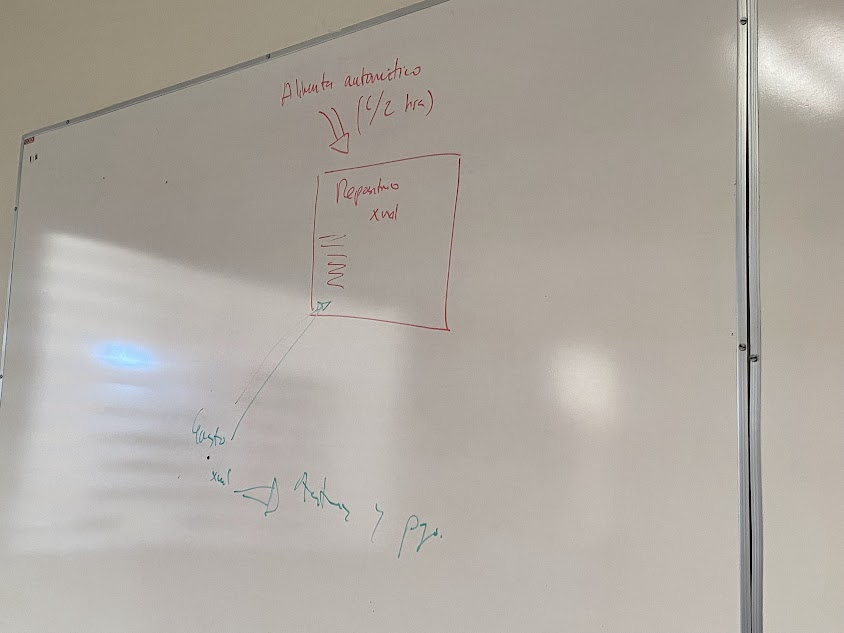 Alimenta automático
(c/2 hra)
Repositorio
xml
Gasto
xml
y pgo.